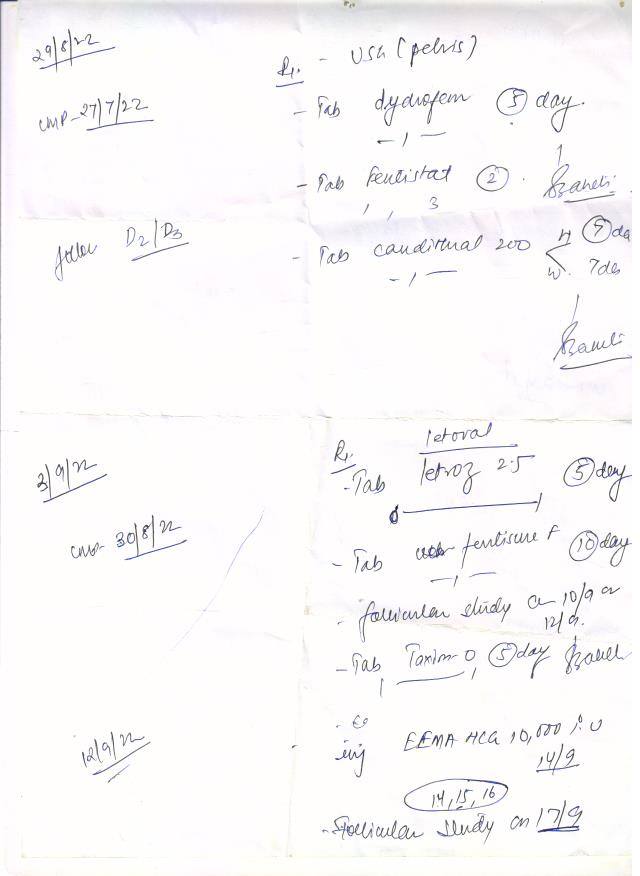 29/8/22
Rx. - USG (pelvis)
LMP - 27/7/22
- Tab dydrofem 5 day.
- 1 -
- Tab Fentistat 2.
, , 3
follow D2/D3
- Tab canditral 200 H 7 da
W. 7 des
- 1 -
3/9/22
Rx. letoval
- Tab letroz 2.5 5 day
LMP - 30/8/22
- Tab fertisure F 10 day
- 1 -
- follicular study on 10/9 or
12/9.
- Tab Taxim-O 5 day
12/9/22
inj EEMA HCG 10,000 i.U
14/9
14, 15, 16
- Follicular study on 17/9